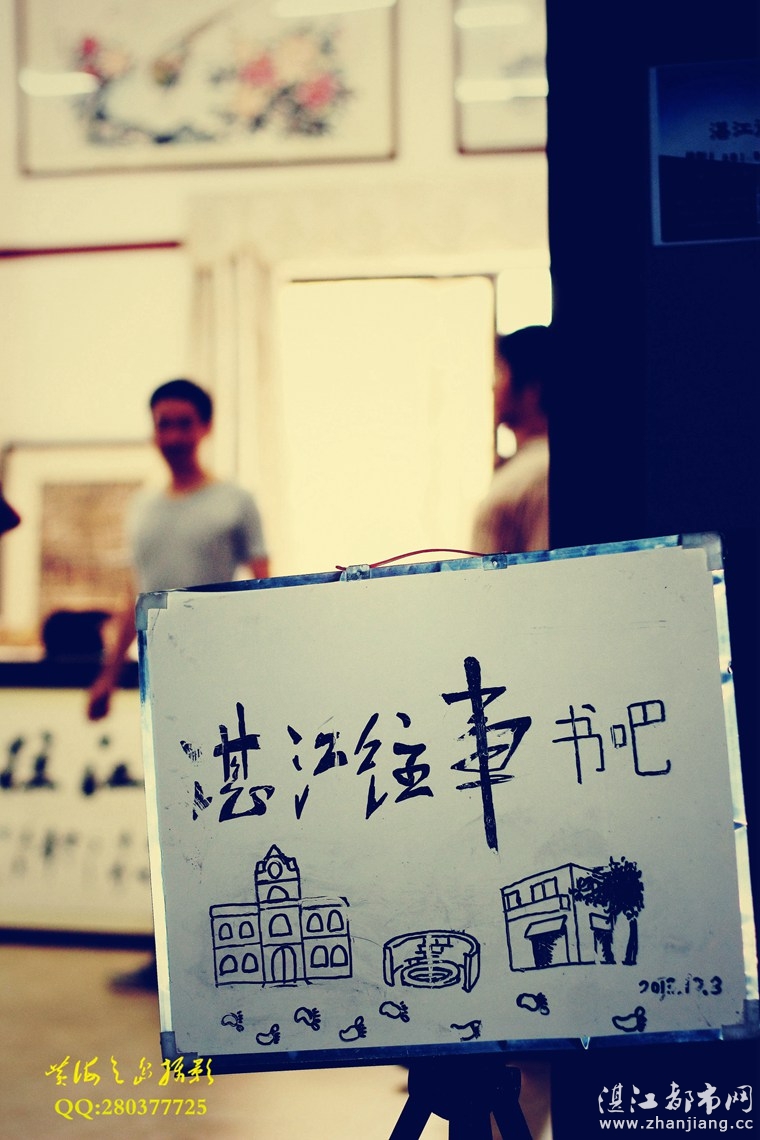 湛江
湛江往事书吧
往江
黄海之岛摄影
QQ:280377725
湛江都市网
www.zhanjiang.cc